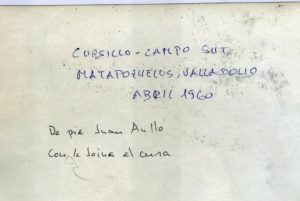 CURSILLO-CAMPO SUT
MATAPOZUELOS, VALLADOLID
ABRIL 1960
De pie Juan Aulló
Con la boina el cura